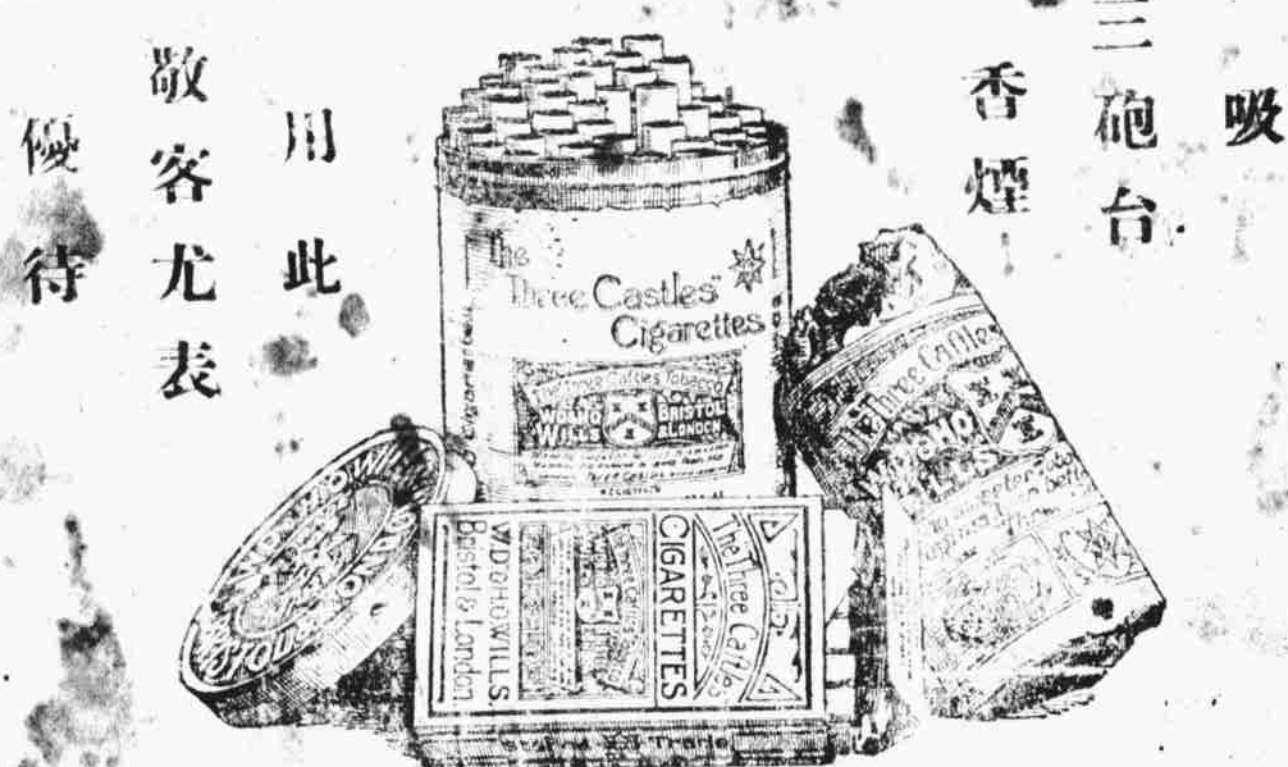 吸
三砲台
香煙
用此
敬客尤表
優待
The
Three Castles"
Cigarettes
The Three Castles Tobacco
WD & HO
WILLS
BRISTOL
& LONDON
The Three Castles
CIGARETTES
W.D & H.O WILLS.
Bristol & London
The Three Castles
WD & HO
WILLS